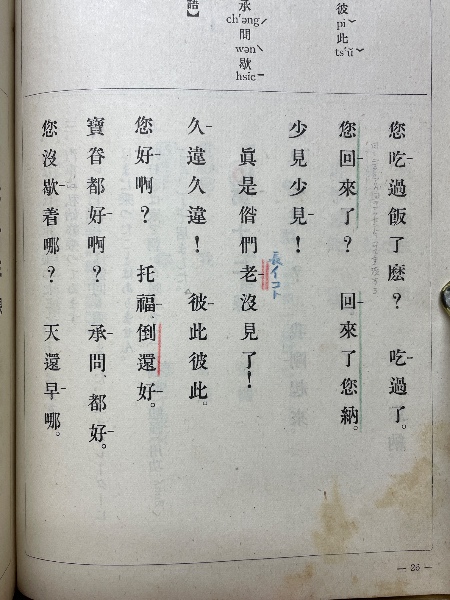 彼 此
pi ˇ ts'ŭ ˇ
承 問 歇
ch'əng ˊ wən ˋ hsie ˉ
語】
您吃過飯了麽? 吃過了。
您回來了? 回來了您納。
少見少見!
眞是偺們老沒見了!
長イコト
久違久違! 彼此彼此。
您好啊? 托福、倒還好。
寶眷都好啊? 承問、都好。
您沒歇着哪? 天還早哪。
— 26 —